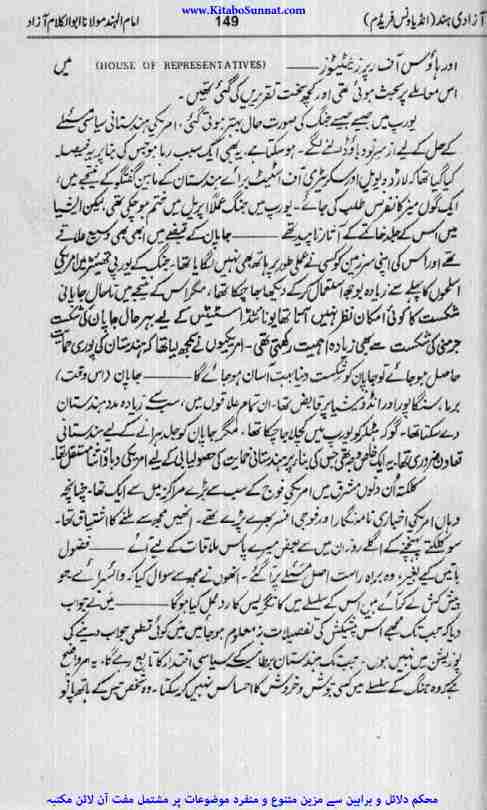 www.KitaboSunnat.com
آزادی ہند (انڈیا ونس فریڈم) 149 امام الہند مولانا ابوالکلام آزاد
اور ہاؤس آف ریپریزینٹیٹیوز (HOUSE OF REPRESENTATIVES) ــــــ میں
اس معاملے پر بحث ہوئی تھی اور کچھ سخت تقریریں کی گئی تھیں۔
یورپ میں جیسے جیسے جنگ کی صورت حال بہتر ہوتی گئی، امریکی ہندستانی سیاسی مسئلے
کے حل کے لیے از سرِنو دباؤ ڈالنے لگے۔ ہو سکتا ہے یہ بھی ایک سبب رہا ہو جس کی بنا پر یہ فیصلہ
کیا گیا تھا کہ لارڈ ویول اور سکریٹری آف اسٹیٹ برائے ہندستان کے مابین گفتگو کے نتیجے میں،
ایک گول میز کانفرنس طلب کی جائے۔ یورپ میں جنگ عملاً اپریل میں ختم ہو چکی تھی، لیکن ایشیا
میں اس کے جلد خاتمے کے آثار ناپید تھے ــــــ جاپان کے قبضے میں ابھی بھی وسیع علاقے
تھے اور اس کی اپنی سرزمین کو کسی نے عملی طور پر ہاتھ بھی نہیں لگایا تھا۔ جنگ کے یورپی تھیٹر میں امریکی
اسلحوں کا پہلے سے زیادہ بوجھ استعمال کر کے دیکھا جا چکا تھا، مگر اس کے نتیجے میں تا حال جاپانی
شکست کا کوئی امکان نظر نہیں آتا تھا یونائٹڈ اسٹیٹس کے لیے بہر حال جاپان کی شکست
جرمنی کی شکست سے بھی زیادہ اہمیت رکھتی تھی۔ امریکیوں نے سمجھ لیا تھا کہ ہندستان کی پوری حمایت
حاصل ہو جائے تو جاپان کو شکست دینا بہت آسان ہو جائے گا ــــــ جاپان (اس وقت)
برما، سنگاپور اور انڈونیشیا پر قابض تھا۔ ان تمام علاقوں میں، سب سے زیادہ مدد ہندستان
دے سکتا تھا۔ گو کہ ہٹلر کو یورپ میں کچلا جا چکا تھا۔ مگر جاپان کو جلد ہرانے کے لیے ہندستانی
تعاون ضروری تھا۔ یہ ایک خاص وجہ تھی جس کی بنا پر ہندستانی حمایت کی حصولیابی کے لیے امریکی دباؤ اتنا مستقل تھا۔
کلکتہ ان دنوں مشرق میں امریکی فوج کے سب سے بڑے مراکز میں سے ایک تھا۔ چنانچہ
وہاں امریکی اخباری نامہ نگار اور فوجی افسر بھرے پڑے تھے۔ انھیں مجھ سے ملنے کا اشتیاق تھا۔
سو کلکتے پہنچنے کے اگلے روز ان میں سے بعض میرے پاس ملاقات کے لیے آئے ــــــ فضول
باتیں کیے بغیر، وہ براہ راست اصل مسئلے پر آ گئے۔ انھوں نے مجھ سے سوال کیا کہ وائسرائے جو
پیش کش لے کر آئے ہیں اس کے سلسلے میں کانگریس کا رد عمل کیا ہوگا ــــــ میں نے جواب
دیا کہ جب تک مجھے اس پیشکش کی تفصیلات نہ معلوم ہو جائیں میں کوئی قطعی جواب دینے کی
پوزیشن میں نہیں ہوں۔ جب تک ہندستان برطانیہ کے سیاسی اقتدار کا تابع رہے گا، یہ امر واضح
ہے کہ وہ جنگ کے سلسلے میں کسی جوش و خروش کا احساس نہیں کر سکتا۔ وہ شخص جس کے ہاتھ پاؤ
محکم دلائل و براہین سے مزین متنوع و منفرد موضوعات پر مشتمل مفت آن لائن مکتبہ